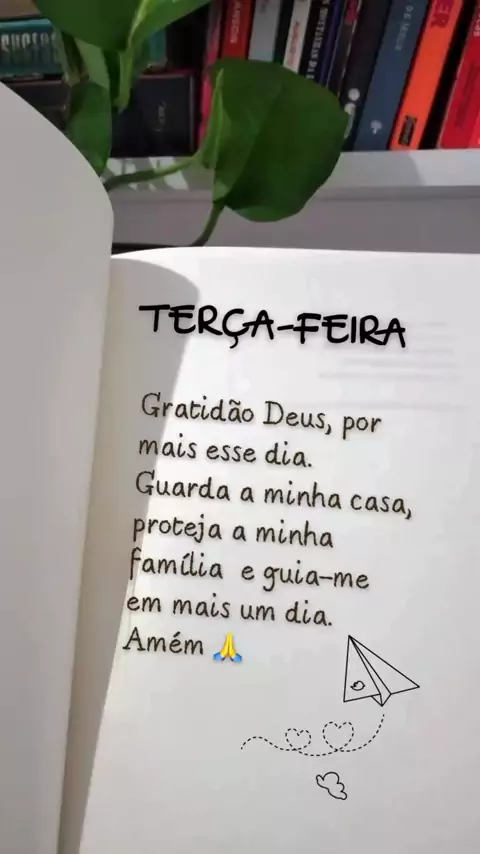 TERÇA-FEIRA
Gratidão Deus, por
mais esse dia.
Guarda a minha casa,
proteja a minha
família e guia-me
em mais um dia.
Amém 🙏